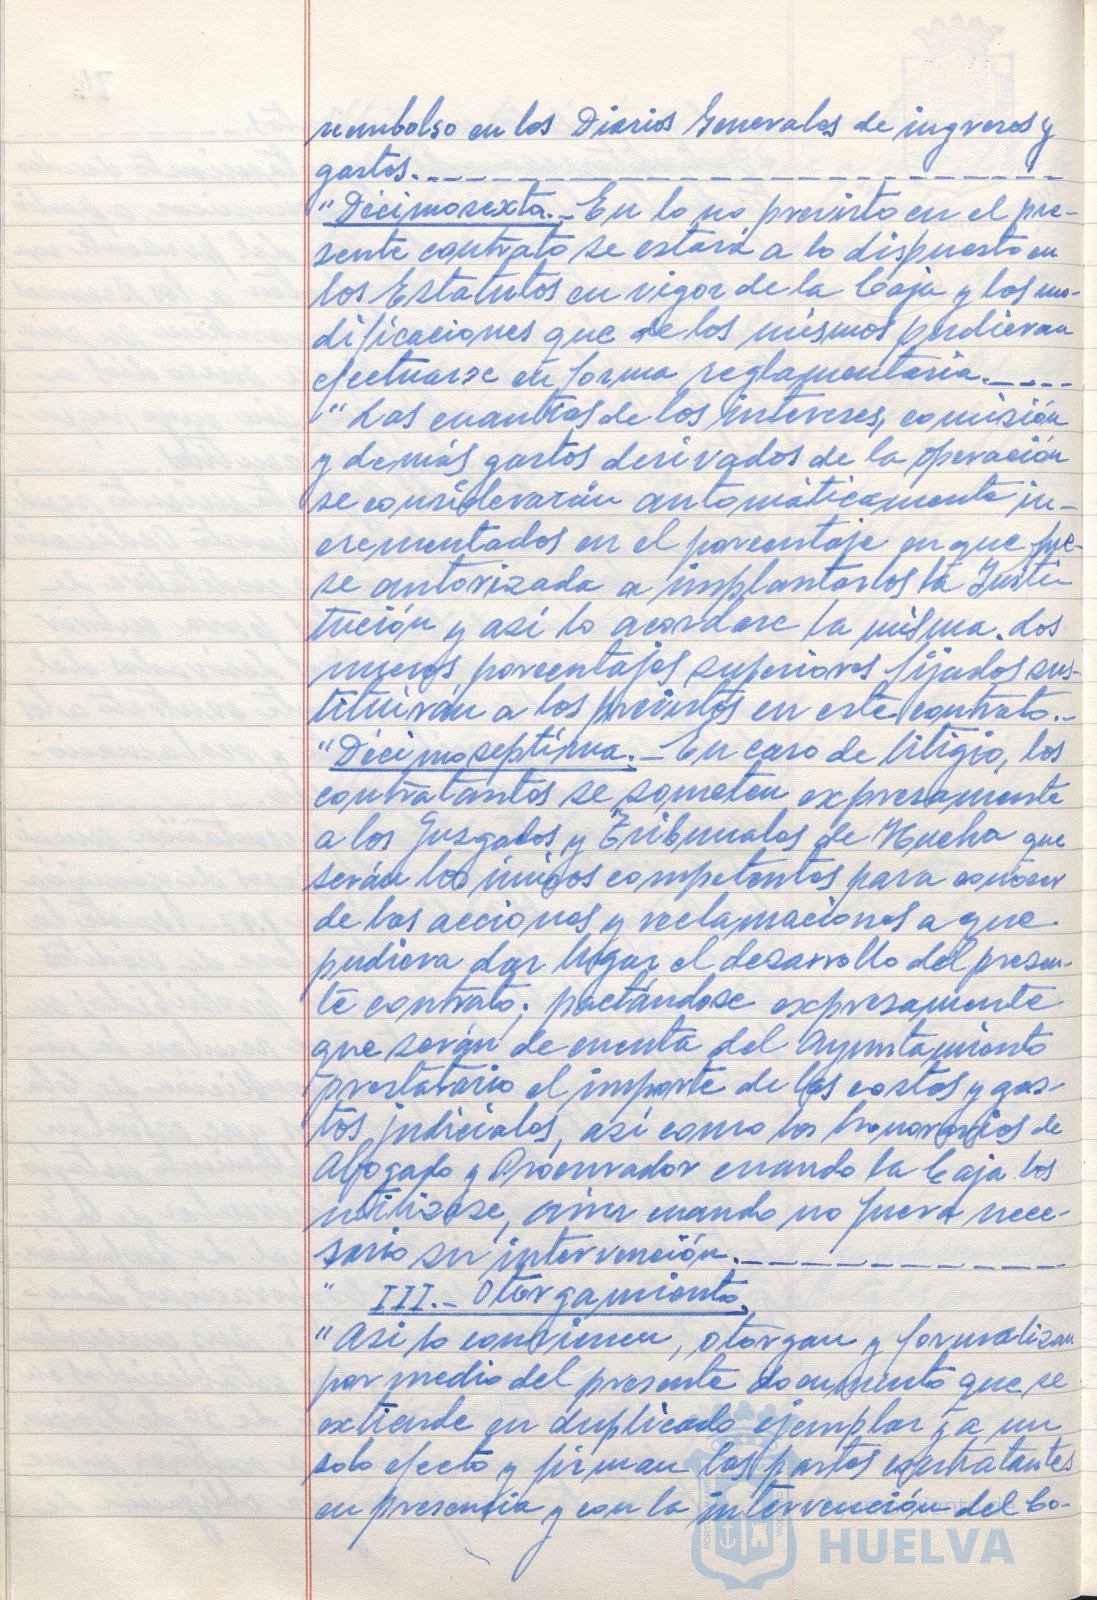 reembolso en los Diarios Generales de ingresos y
gastos.
"Décimosexta.- En lo no previsto en el pre-
sente contrato se estará a lo dispuesto en
los Estatutos en vigor de la Caja y las mo-
dificaciones que de los mismos pudieran
efectuarse en forma reglamentaria.
"Las cuantías de los intereses, comisión
y demás gastos derivados de la operación
se considerarán automáticamente in-
crementados en el porcentaje en que fue-
se autorizada a implantarlos la Insti-
tución y así lo acordase la misma. Los
nuevos porcentajes superiores fijados sus-
tituirán a los previstos en este contrato.-
"Décimoséptima.- En caso de litigio, los
contratantes se someten expresamente
a los Juzgados y Tribunales de Huelva que
serán los únicos competentes para conocer
de las acciones y reclamaciones a que
pudiera dar lugar el desarrollo del presen-
te contrato; pactándose expresamente
que serán de cuenta del Ayuntamiento
prestatario el importe de las costas y gas-
tos judiciales, así como los honorarios de
Abogado y Procurador cuando la Caja los
utilizase, aun cuando no fuera nece-
sario su intervención.
" III.- Otorgamiento.
"Así lo convienen, otorgan y formalizan
por medio del presente documento que se
extiende en duplicado ejemplar y a un
solo efecto y firman las partes contratantes
en presencia y con la intervención del Co-
HUELVA